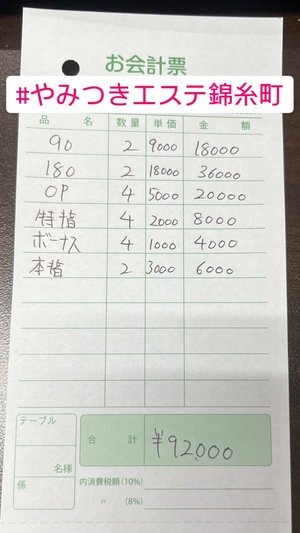 お会計票
#やみつきエステ錦糸町
品名 数量 単価 金額
90 2 9000 18000
180 2 18000 36000
OP 4 5000 20000
特指 4 2000 8000
ボーナス 4 1000 4000
本指 2 3000 6000
テーブル
名様
係
合計 ¥92,000
内消費税額(10%)
〃 (8%)